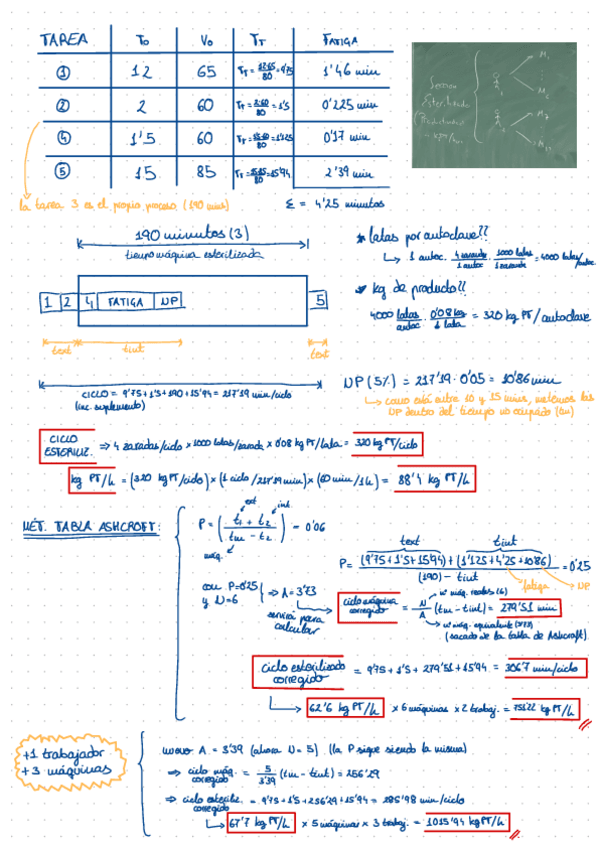 TAREA To Vo TT FATIGA
① 12 65 TT = 12·65/80 = 9'75 1'46 min
② 2 60 TT = 2·60/80 = 1'5 0'225 min
④ 1'5 60 TT = 1'5·60/80 = 1'125 0'17 min
⑤ 15 85 TT = 15·85/80 = 15'94 2'39 min
la tarea 3 es el propio proceso (190 mins) Σ = 4'25 minutos
Sección
Esterilizado
M1
M6
M7
M12
190 minutos (3)
tiempo máquina esterilizada
1 2 4 FATIGA NP 5
text tint text
* latas por autoclave??
↳ 1 autoc. · 4 zaranda/1 autoc · 1000 latas/1 zaranda = 4000 latas/autoc
* kg de producto??
4000 latas/autoc · 0'08 kg/1 lata = 320 kg PT/autoclave
CICLO = 9'75+1'5+190+15'94 = 217'19 min/ciclo
(inc. suplemento)
NP (5%) = 217'19 · 0'05 = 10'86 min
↳ como está entre 10 y 15 mins, metemos las
NP dentro del tiempo no ocupado (tm)
CICLO ESTERILIZ. ⇒ 4 zarandas/ciclo × 1000 latas/zaranda × 0'08 kg PT/lata = 320 kg PT/ciclo
kg PT/h = (320 kg PT/ciclo) × (1 ciclo/217'19 min) × (60 min/1h) = 88'4 kg PT/h
MÉT. TABLA ASHCROFT:
ext int
P = (t1 + t2 / tm - t2) = 0'06
máq.
text tint
P = (9'75+1'5+15'94) + (1'125+4'25+10'86) / (190) - tint = 0'25
fatiga NP
con P=0'25 y N=6 } ⇒ A=3'73
servirá para calcular
ciclo máquina corregido = N/A (tm - tint) = 279'51 min
nº máq. reales (6)
nº máq. equivalente (3'73)
(sacado de la tabla de Ashcroft)
ciclo esterilizado corregido = 9'75 + 1'5 + 279'51 + 15'94 = 306'7 min/ciclo
↳ 62'6 kg PT/h × 6 máquinas × 2 trabaj. = 751'22 kg PT/h
+1 trabajador
+3 máquinas
nuevo A = 3'39 (ahora N = 5) (la P sigue siendo la misma)
⇒ ciclo máq. corregido = 5/3'39 (tm - tint) = 256'29
⇒ ciclo esteriliz. corregido = 9'75 + 1'5 + 256'29 + 15'94 = 285'98 min/ciclo
↳ 67'7 kg PT/h × 5 máquinas × 3 trabaj. = 1015'94 kg PT/h